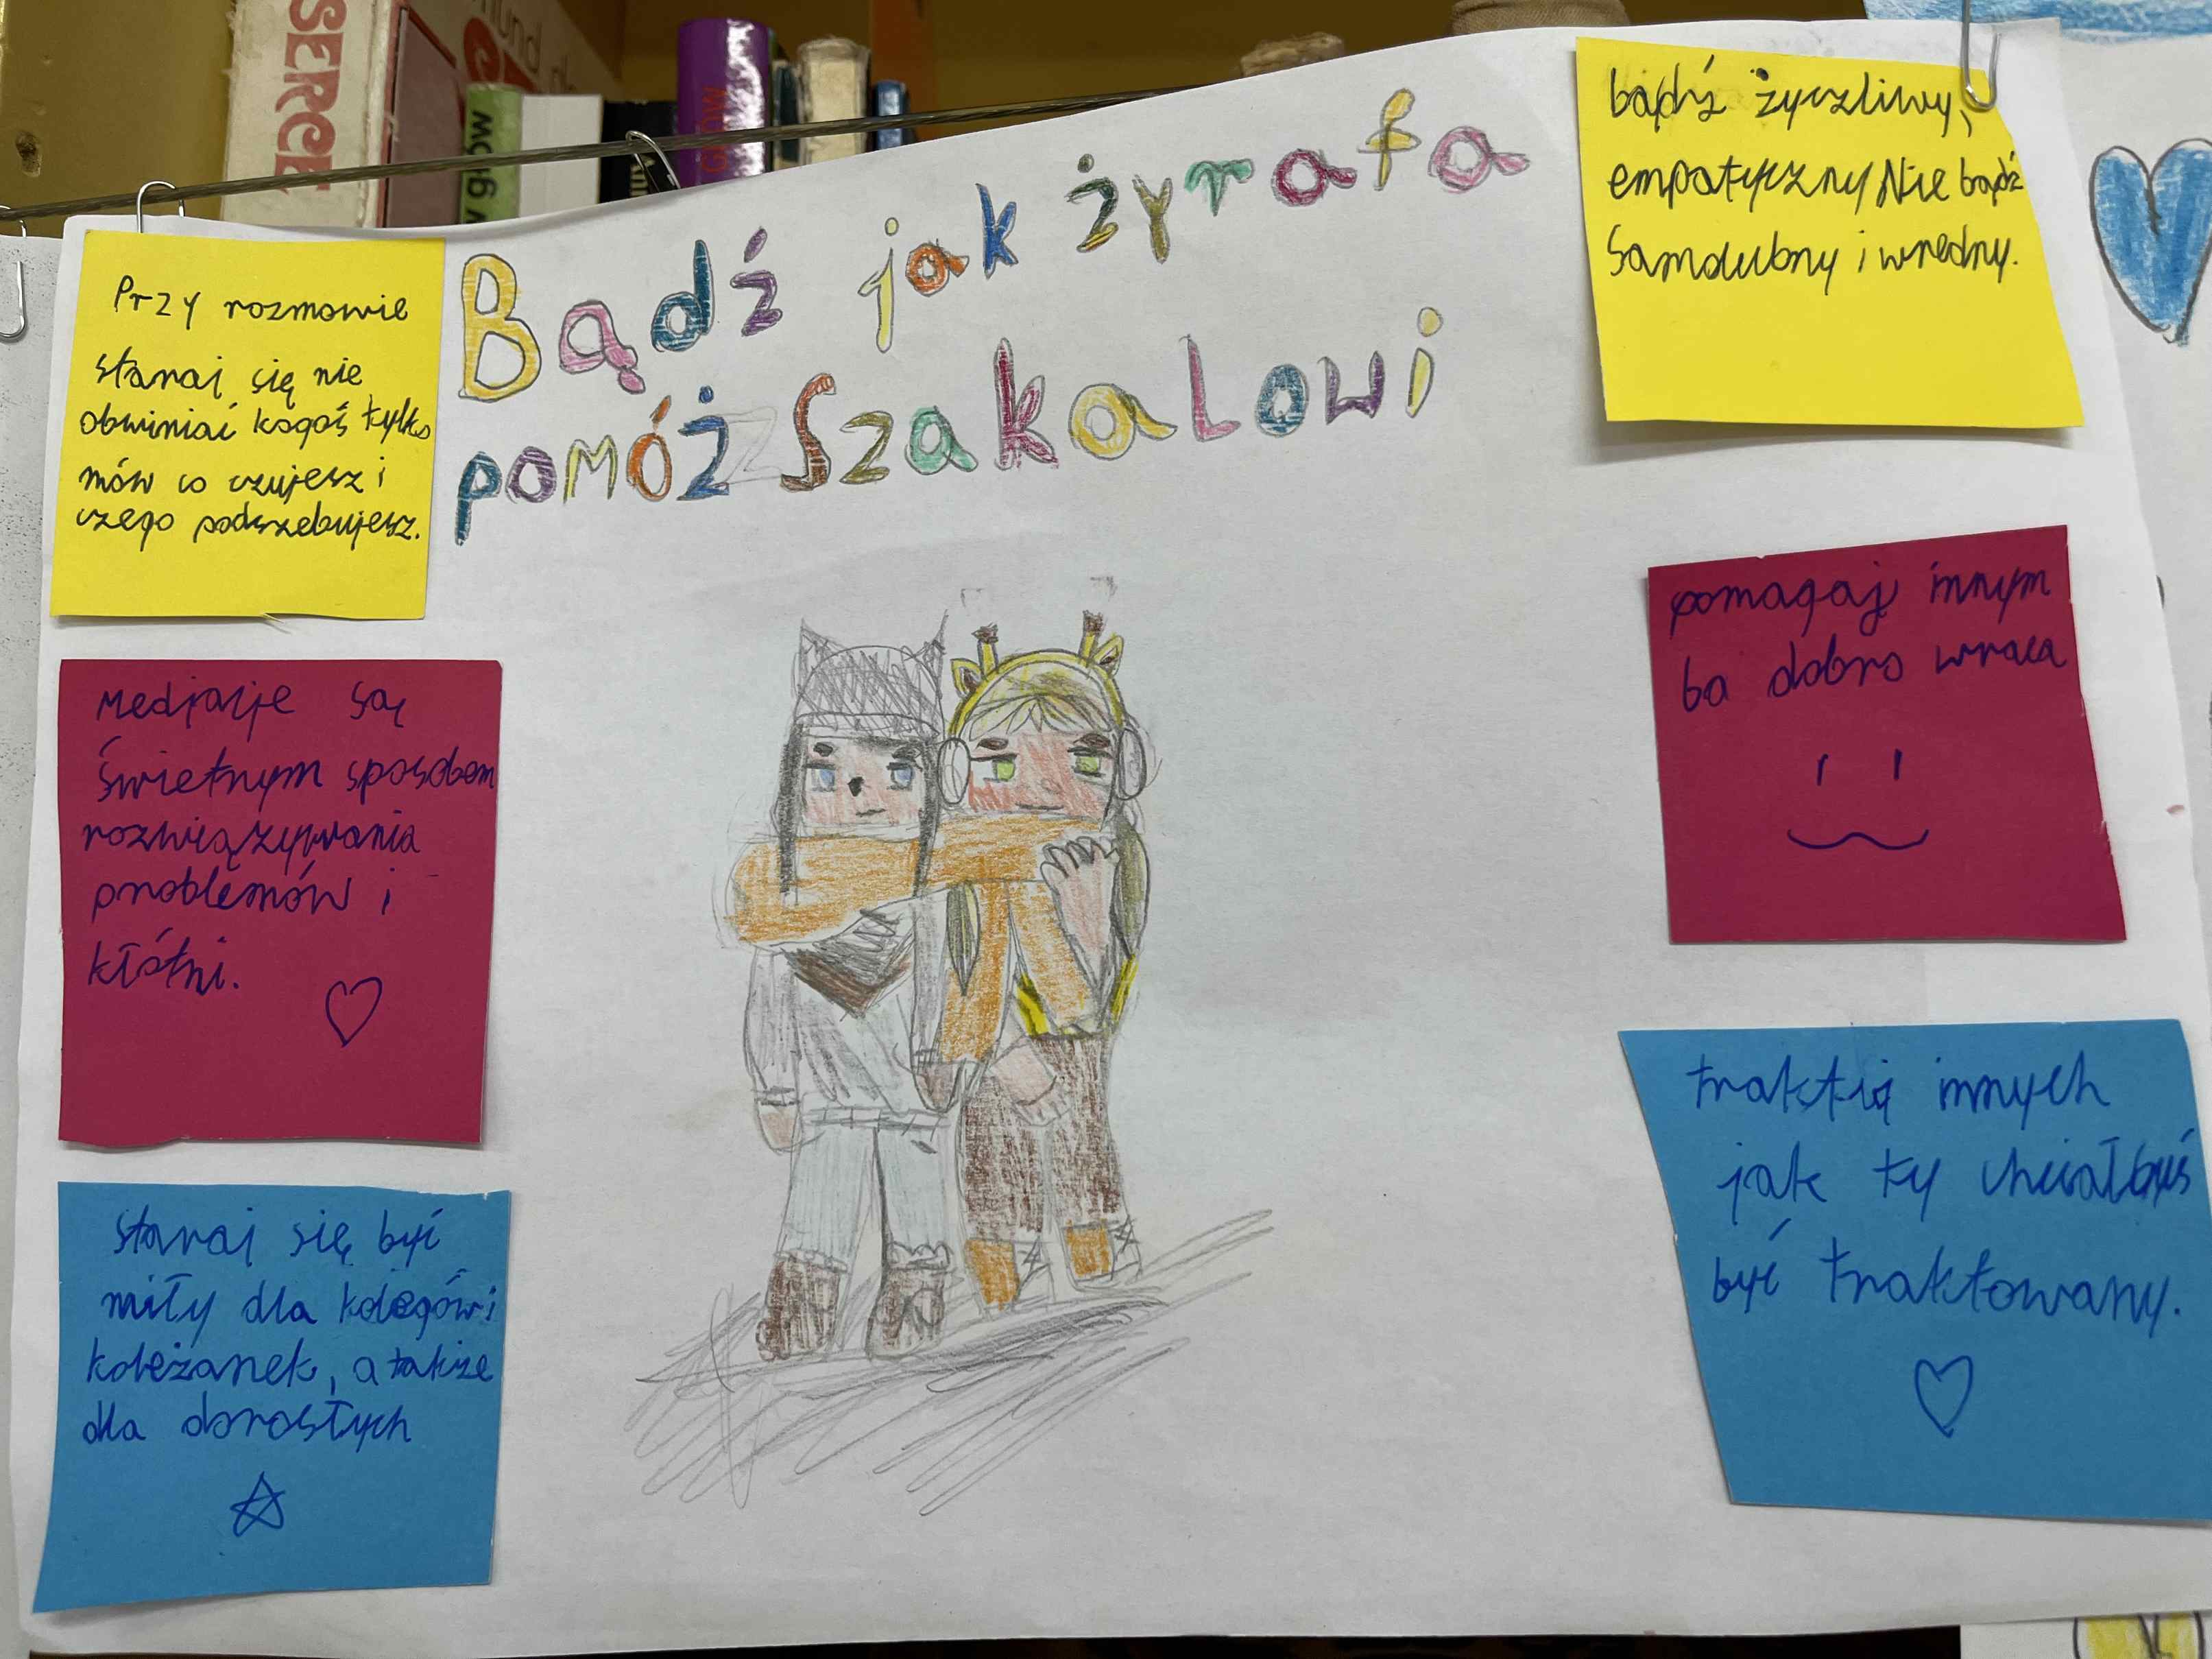 SERCE
w głów
Bądź jak żyrafa
pomóż Szakalowi
Przy rozmowie
staraj się nie
obwiniać kogoś tylko
mów co czujesz i
czego podszebujesz.
Medjacje są
świetnym sposobem
rozwiązywania
problemów i
kłótni.
staraj się być
miły dla kolegów i
koleżanek, a także
dla dorosłych
bądź życzliwy,
empatyczny Nie bądź
Samolubny i wredny.
pomagaj innym
bo dobro wraca
traktuj innych
jak ty chciałbyś
być traktowany.